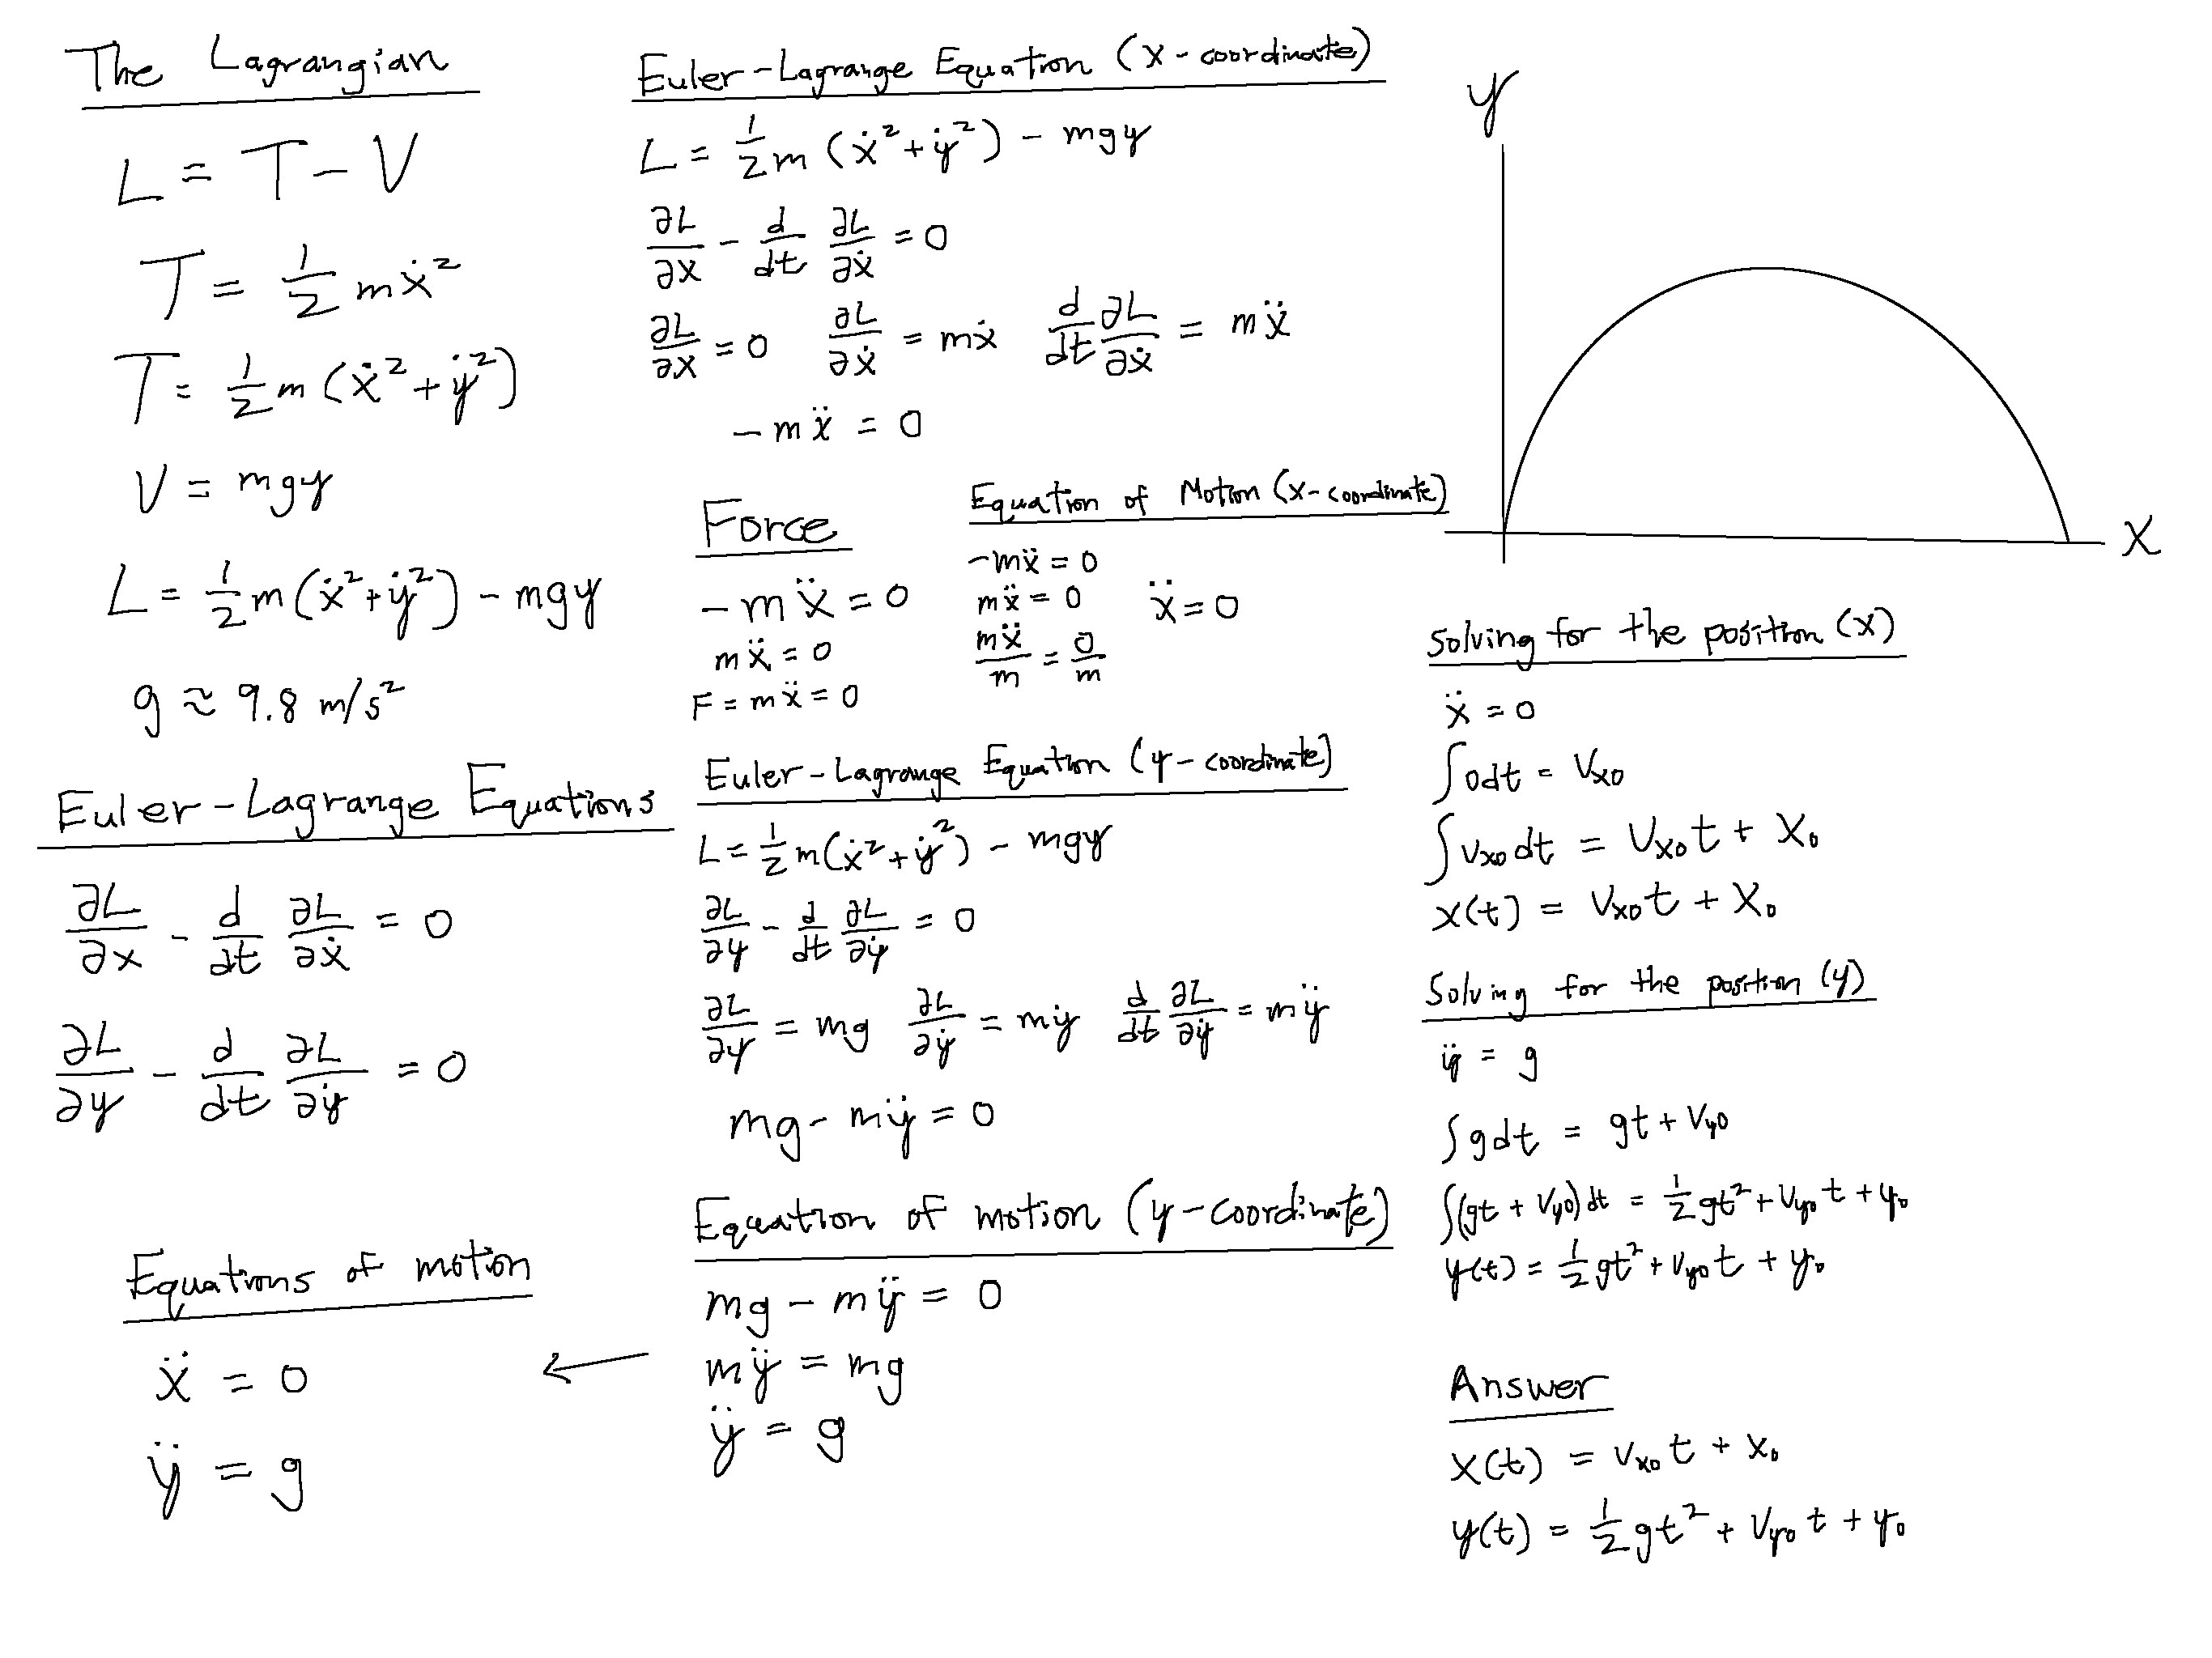 The Lagrangian
L = T - V
T = 1/2 mẋ²
T = 1/2 m (ẋ² + ẏ²)
V = mgy
L = 1/2 m(ẋ² + ẏ²) - mgy
g ≈ 9.8 m/s²
Euler-Lagrange Equations
∂L/∂x - d/dt ∂L/∂ẋ = 0
∂L/∂y - d/dt ∂L/∂ẏ = 0
Equations of motion
ẍ = 0
ÿ = g
Euler-Lagrange Equation (x-coordinate)
L = 1/2 m (ẋ² + ẏ²) - mgy
∂L/∂x - d/dt ∂L/∂ẋ = 0
∂L/∂x = 0 ∂L/∂ẋ = mẋ d/dt ∂L/∂ẋ = mẍ
-mẍ = 0
Force
-mẍ = 0
mẍ = 0
F = mẍ = 0
Equation of Motion (x-coordinate)
-mẍ = 0
mẍ = 0 ẍ = 0
mẍ/m = 0/m
Euler-Lagrange Equation (y-coordinate)
L = 1/2 m(ẋ² + ẏ²) - mgy
∂L/∂y - d/dt ∂L/∂ẏ = 0
∂L/∂y = mg ∂L/∂ẏ = mẏ d/dt ∂L/∂ẏ = mÿ
mg - mÿ = 0
Equation of motion (y-coordinate)
mg - mÿ = 0
← mÿ = mg
ÿ = g
y
x
Solving for the position (x)
ẍ = 0
∫0dt = Vx0
∫Vx0dt = Vx0t + X0
x(t) = Vx0t + X0
Solving for the position (y)
ÿ = g
∫gdt = gt + Vy0
∫(gt + Vy0)dt = 1/2 gt² + Vy0t + y0
y(t) = 1/2 gt² + Vy0t + y0
Answer
x(t) = Vx0t + X0
y(t) = 1/2 gt² + Vy0t + y0